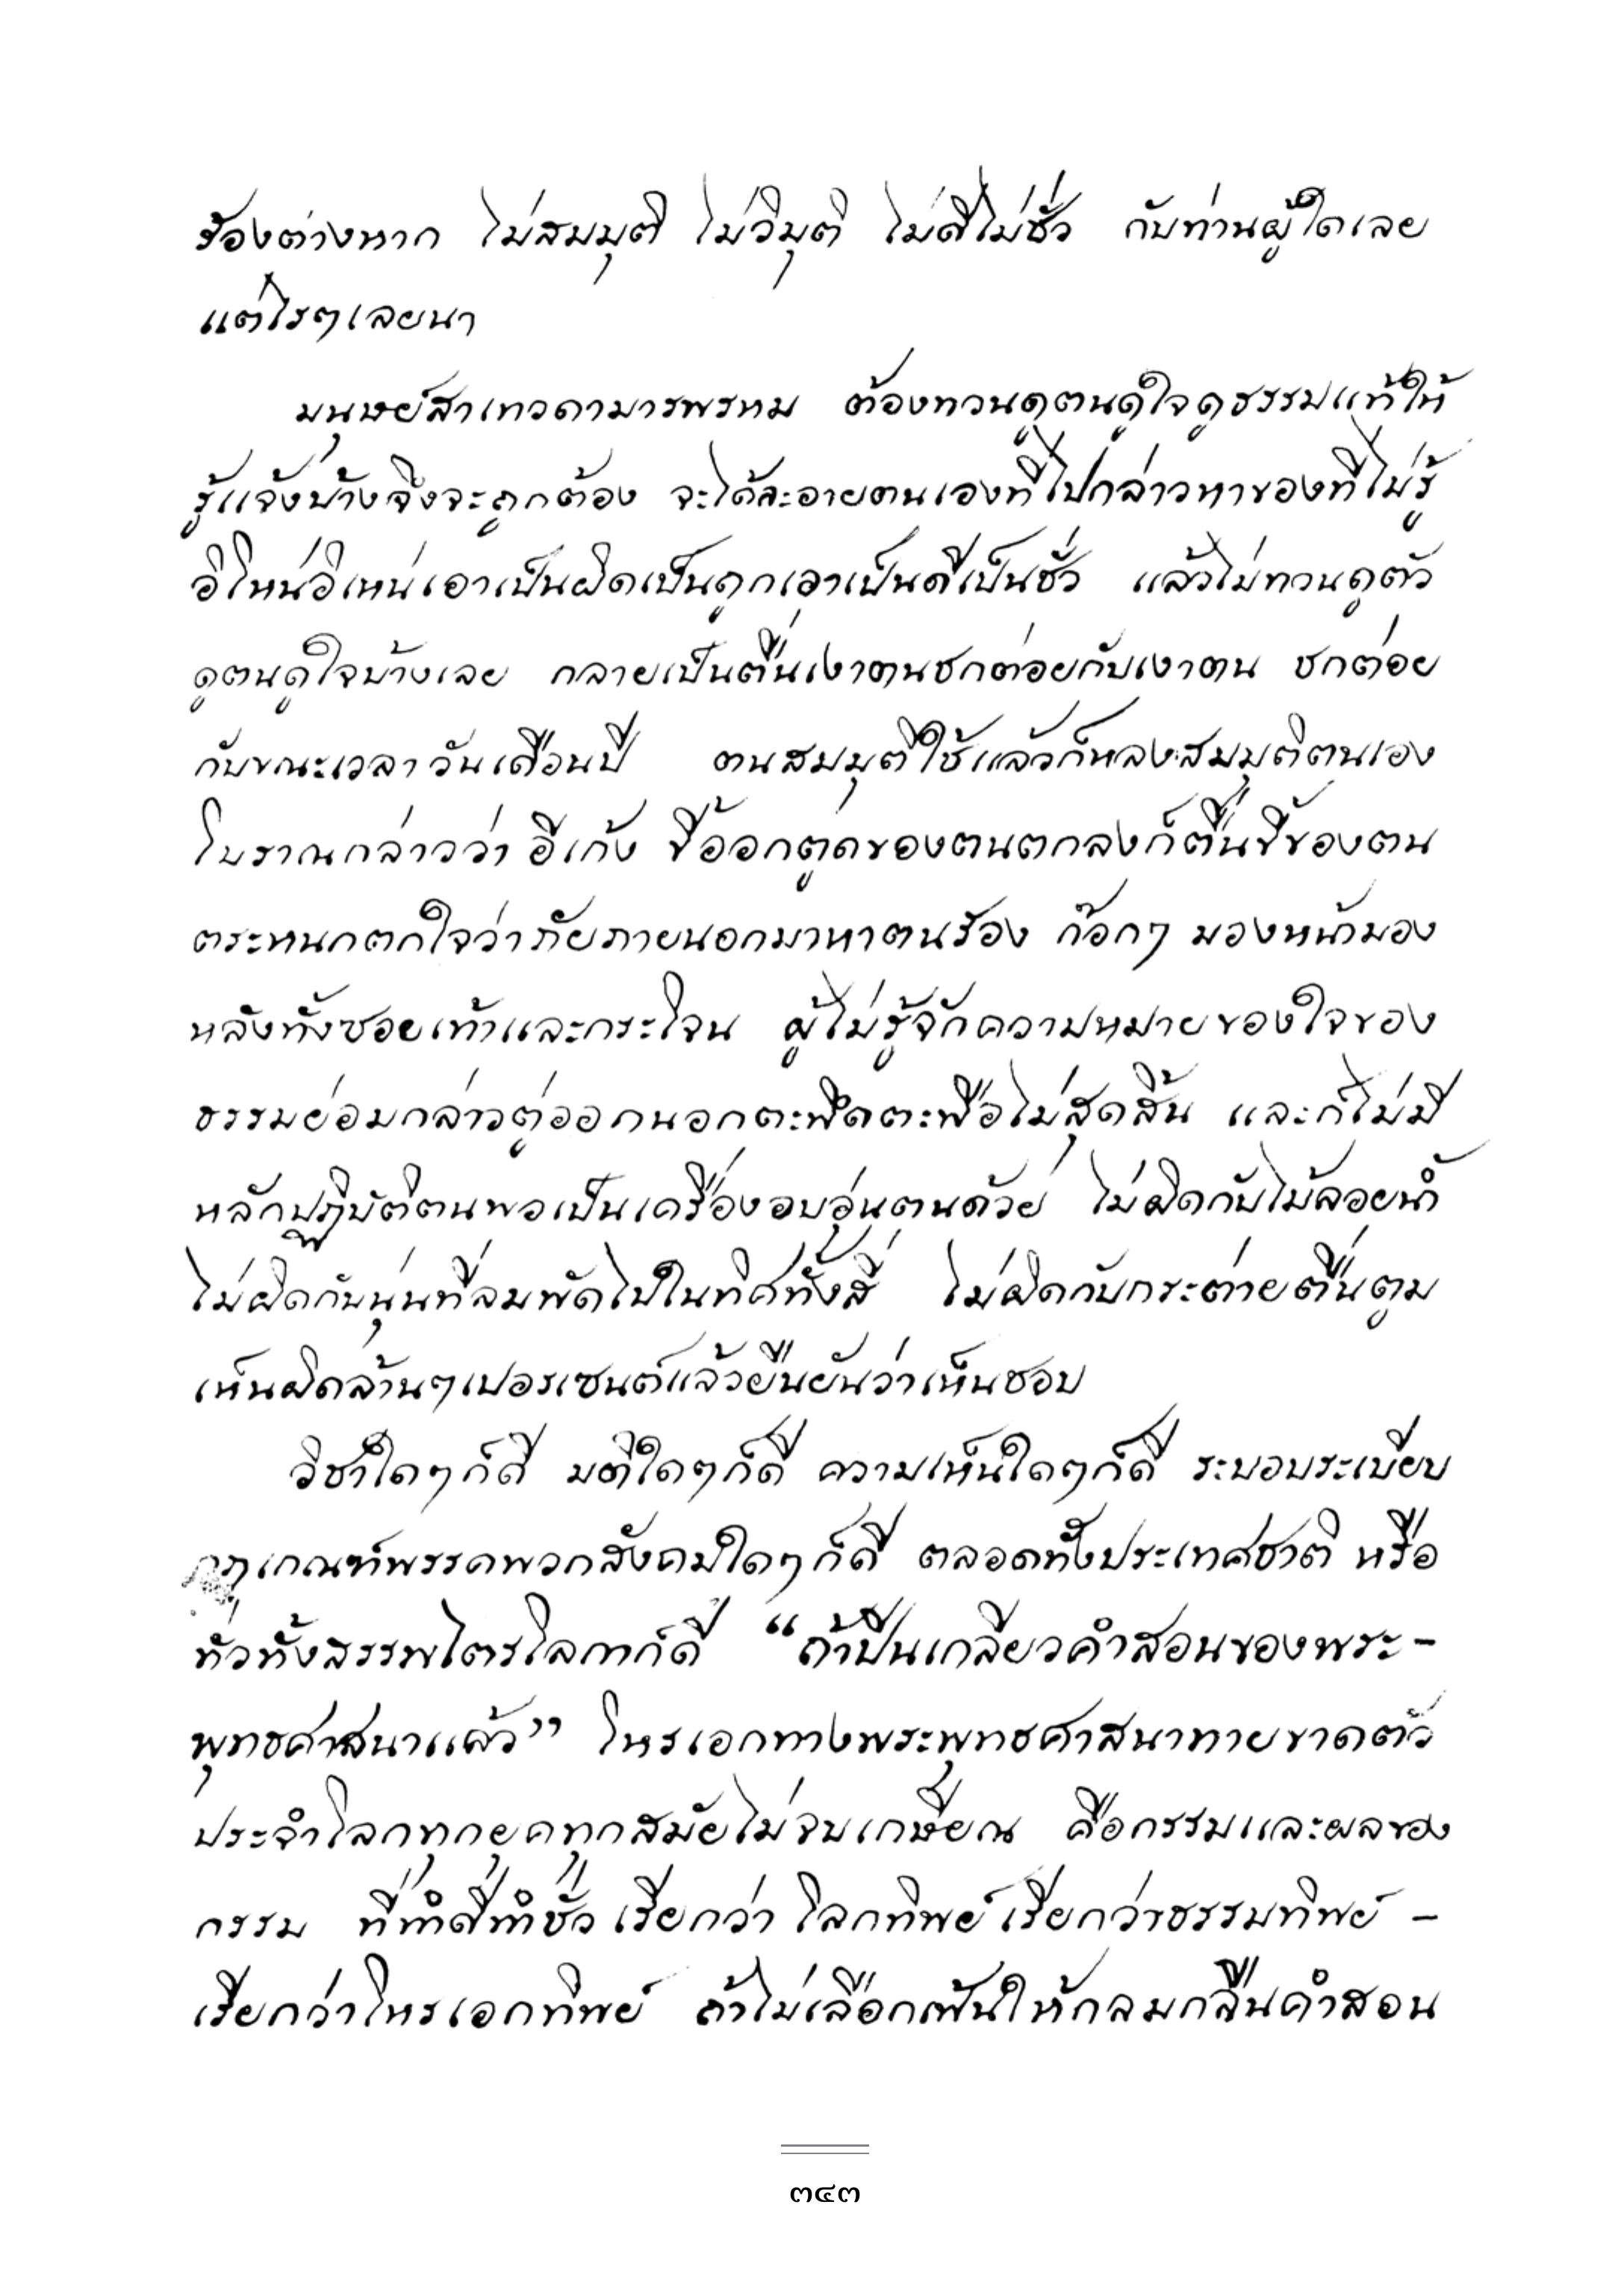 ร้องต่างหาก ไม่สมมุติ ไม่วิมุติ ไม่ดีไม่ชั่ว กับท่านผู้ใดเลย
แต่ไรๆเลยนา
มนุษย์สาเทวดามารพรหม ต้องทวนดูตนดูใจดูธรรมแท้ให้
รู้แจ้งบ้างจึงจะถูกต้อง จะได้ละอายตนเองที่ไปกล่าวหาของที่ไม่รู้
อิโหน่อิเหน่เอาเป็นผิดเป็นถูกเอาเป็นดีเป็นชั่ว แล้วไม่ทวนดูตัว
ดูตนดูใจบ้างเลย กลายเป็นตื่นเงาตนชกต่อยกับเงาตน ชกต่อย
กับขณะเวลา วันเดือนปี ตนสมมุติใช้แล้วก็หลงสมมุติตนเอง
โบราณกล่าวว่า อีเก้ง ขี้ออกตูดของตนตกลงก็ตื่นขี้ของตน
ตระหนกตกใจว่าภัยภายนอกมาหาตนร้อง ก๊อกๆ มองหน้ามอง
หลังทั้งซอยเท้าและกระโจน ผู้ไม่รู้จักความหมายของใจของ
ธรรมย่อมกล่าวตู่ออกนอกตะพึดตะพือไม่สุดสิ้น และก็ไม่มี
หลักปฏิบัติตนพอเป็นเครื่องอบอุ่นตนด้วย ไม่ผิดกับไม้ลอยน้ำ
ไม่ผิดกับนุ่นที่ลมพัดไปในทิศทั้งสี่ ไม่ผิดกับกระต่ายตื่นตูม
เห็นผิดล้านๆเปอรเซนต์แล้วยืนยันว่าเห็นชอบ
วิชาใดๆก็ดี มติใดๆก็ดี ความเห็นใดๆก็ดี ระบอบระเบียบ
กฎเกณฑ์พรรคพวกสังคมใดๆก็ดี ตลอดทั้งประเทศชาติ หรือ
ทั่วทั้งสรรพไตรโลกาก็ดี “ถ้าปีนเกลียวคำสอนของพระ-
พุทธศาสนาแล้ว” โหรเอกทางพระพุทธศาสนาทายขาดตัว
ประจำโลกทุกยุคทุกสมัยไม่จบเกษียณ คือกรรมและผลของ
กรรม ที่ทำดีทำชั่ว เรียกว่า โลกทิพย์ เรียกว่าธรรมทิพย์ -
เรียกว่าโหรเอกทิพย์ ถ้าไม่เลือกเฟ้นให้กลมกลืนคำสอน
๓๔๓